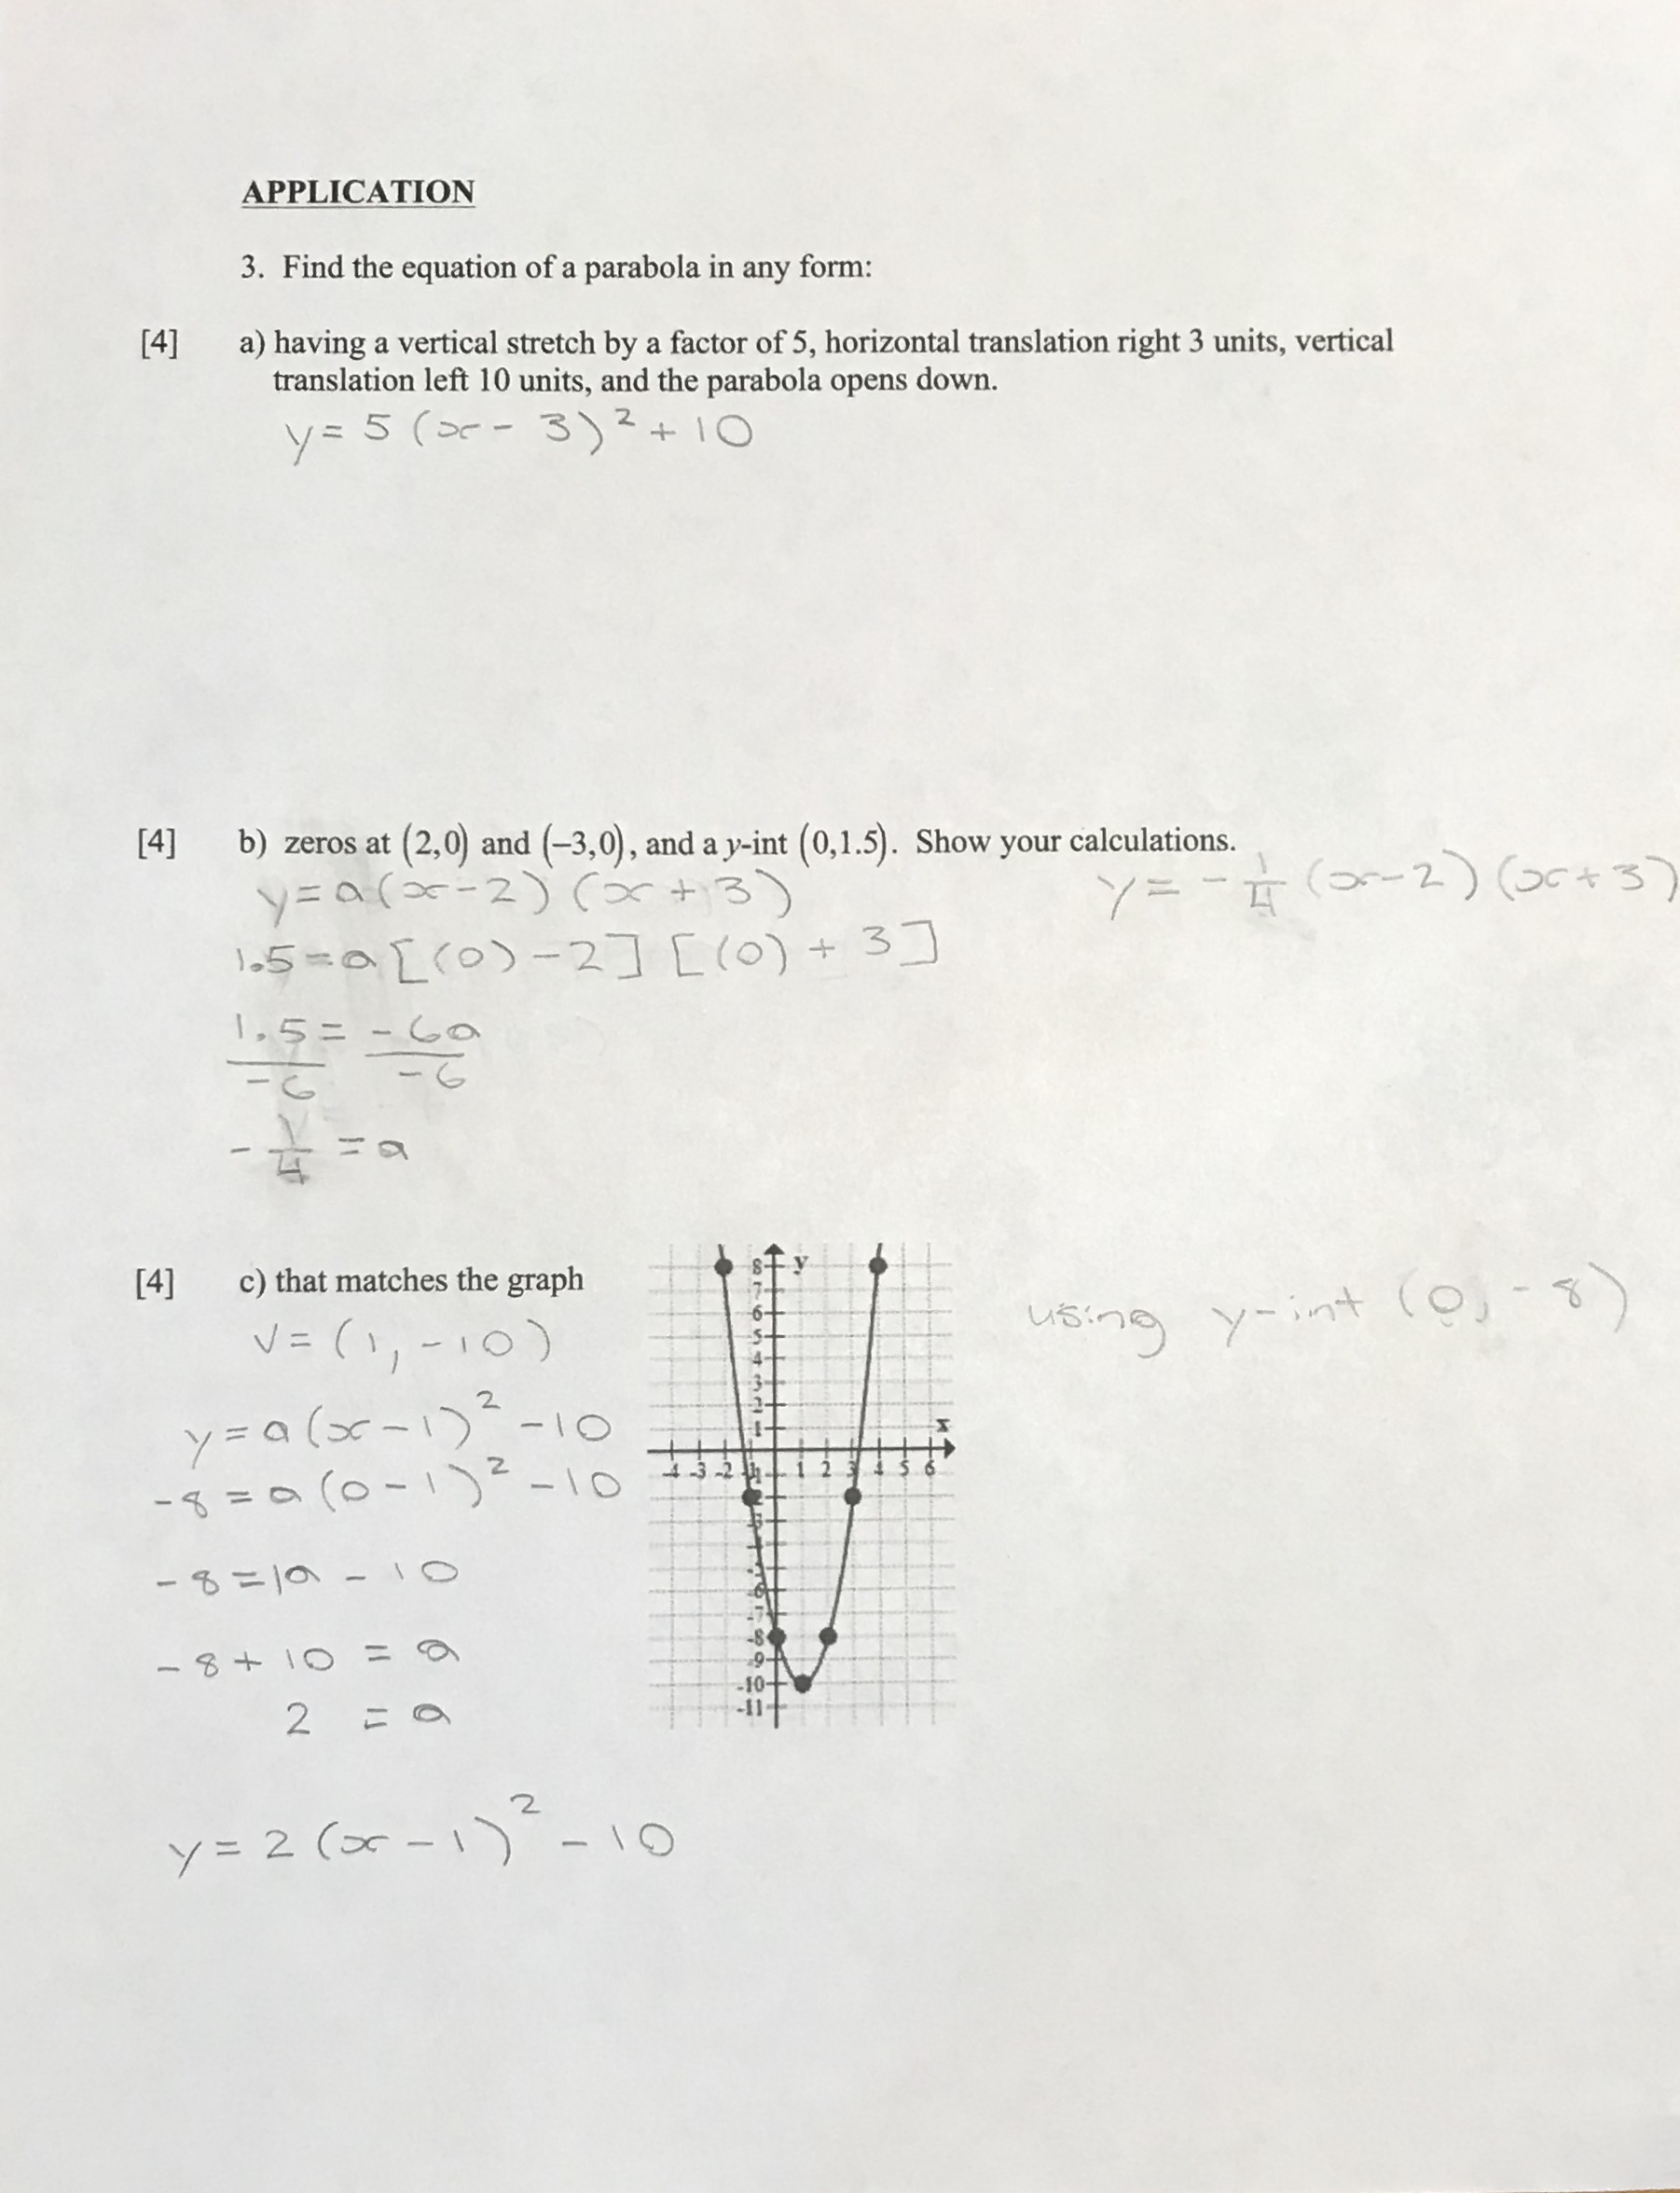 APPLICATION
3. Find the equation of a parabola in any form:
[4] a) having a vertical stretch by a factor of 5, horizontal translation right 3 units, vertical
translation left 10 units, and the parabola opens down.
y = 5 (x - 3)² + 10
[4] b) zeros at (2,0) and (−3,0), and a y-int (0,1.5). Show your calculations.
y = a (x - 2) (x + 3)
y = - 1/4 (x - 2) (x + 3)
1.5 = a [(0) - 2] [(0) + 3]
1.5 = -6a
-6 -6
- 1/4 = a
[4] c) that matches the graph
using y-int (0, -8)
V = (1, -10)
y = a (x - 1)² - 10
-8 = a (0 - 1)² - 10
-8 = 1a - 10
-8 + 10 = a
2 = a
y = 2 (x - 1)² - 10
y
8
7
6
5
4
3
2
1
x
-4 -3 -2 -1 1 2 3 4 5 6
-6
-7
-8
-9
-10
-11